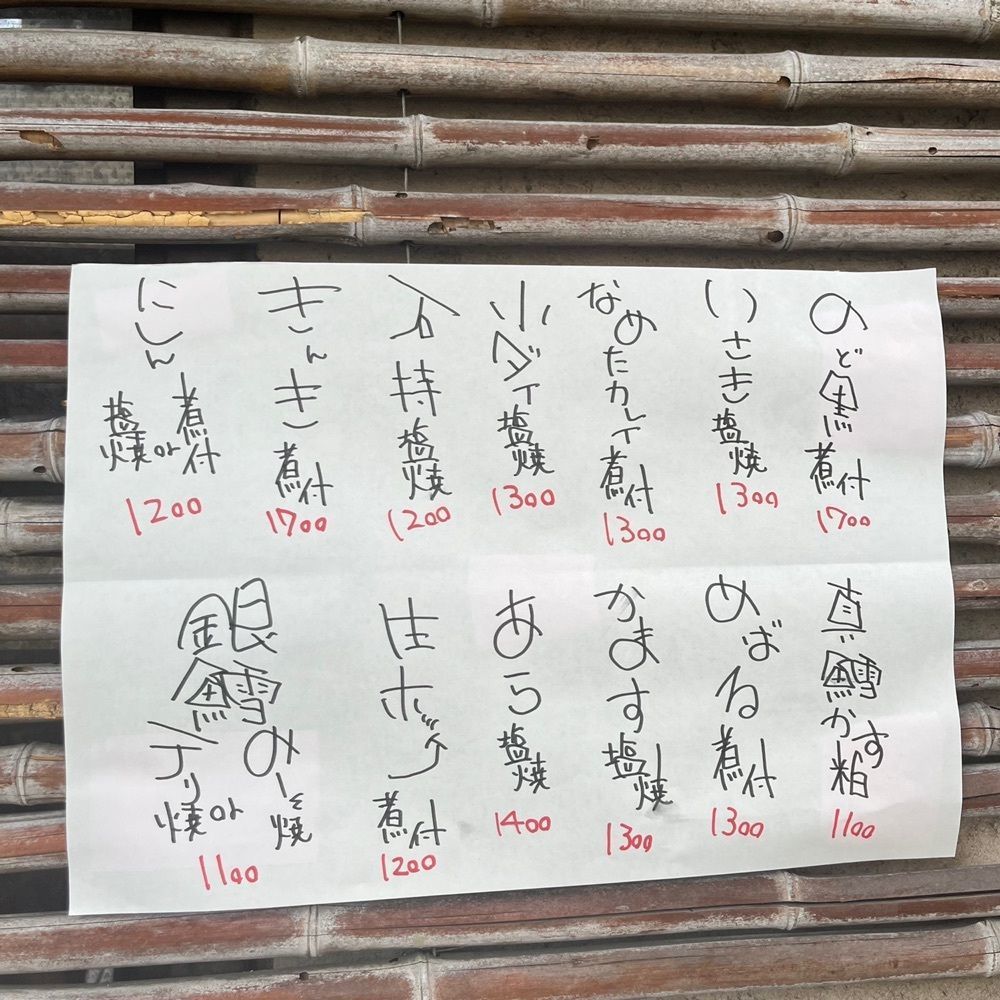 のど黒煮付
1700
いさき塩焼
1300
なめたカレイ煮付
1300
小ダイ塩焼
1300
石持塩焼
1200
きんき煮付
1700
にしん
煮付
or
塩焼
1200
真鱈かす粕
1100
めばる煮付
1300
かます塩焼
1300
あら塩焼
1400
生ホッケ煮付
1200
銀鱈
みそ焼
or
テリ焼
1100